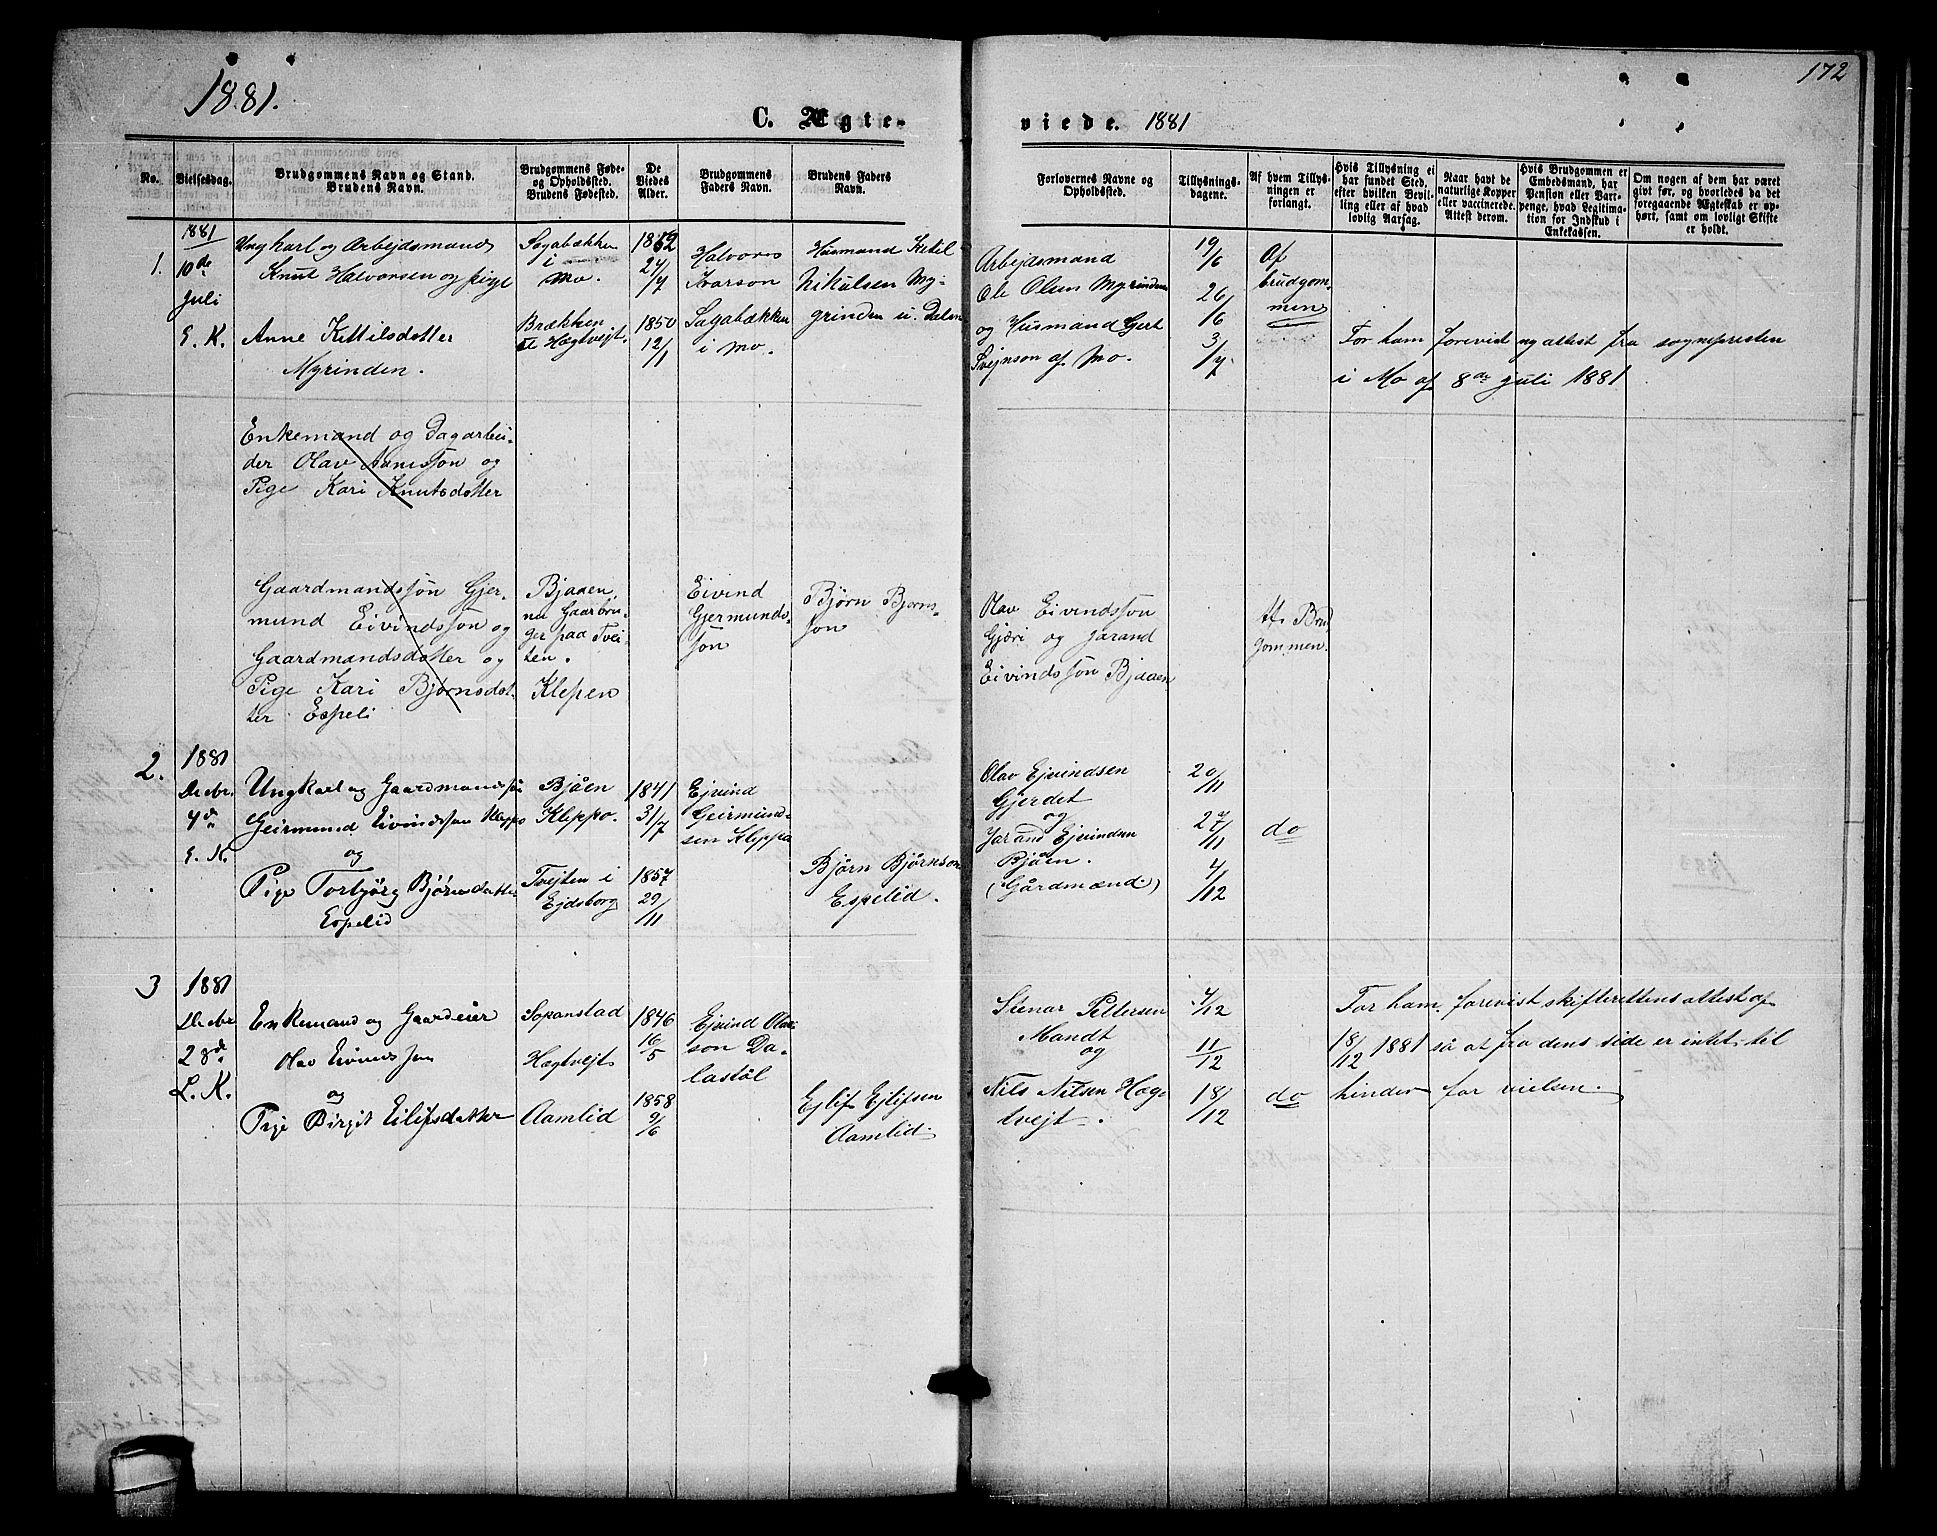 1881.
C. Ægte-
viede. 1881
172
No.
Vielsesdag.
Brudgommens Navn og Stand.
Brudens Navn.
Brudgommens Føde-
og Opholdssted.
Brudens Fødested.
De
Viedes
Alder.
Brudgommens
Faders Navn.
Brudens Faders
Navn.
Forlovernes Navne og
Opholdssted.
Tillysnings-
dagene.
Af hvem Tillys-
ningen er
forlangt.
Hvis Tillysning ei
har fundet Sted,
efter hvilken Bevil-
ling eller af hvad
lovlig Aarsag.
Naar havt de
naturlige Kopper
eller vaccinerede.
Attest derom.
Hvis Brudgommen er
Embedsmand, har
Pension eller Vart-
penge, hvad Legitima-
tion for Indskud i
Enkekassen.
Om nogen af dem har været
givt før, og hvorledes da det
foregaaende Ægteskab er op-
hørt, samt om lovligt Skifte
er holdt.
1.
1881
10de
Juli
E. K.
Ungkarl og Arbejdsmand
Knut Halvorsen og pige
Anne Kittilsdotter
Myrinden.
Sagabækken
i
Mo.
Brækken
Hægtvejt.
1852
24/7
1850
12/1
Halvores
Ivarson
Sagabækken
i Mo.
Husmand Ketil
Nikulsen My-
grinden u. Dalen
Arbejdsmand
Ole Olsen Myrinden
og Husmand Gert
Svejnson af Mo.
19/6
26/6
3/7
Af
brudgom-
men
For ham forevist ny attest fra sognepresten
i Mo af 8de juli 1881
Enkemand og Dagarbei-
der Olav Aanesson og
Pige Kari Knutsdotter
Gaardmandssøn Gjer-
mund Eivindssøn og
Gaardmandsdotter og
Pige Kari Bjørnsdot-
ter Espeli
Bjaaen,
nu Gaarbru-
ger paa Tvei-
ten.
Klepen
Eivind
Gjermunds-
søn
Bjørn Bjørns-
søn
Olav Eivindssøn
Gjæri og Jarand
Eivindssøn Bjaaen
Af Brud
gommen.
2.
1881
Decbr.
4de
E. K.
Ungkarl og Gaardmandssøn
Geirmund Eivindssøn Kleppo
og
Pige Torbjørg Bjørnsdatter
Espelid
Bjåen
Kleppo.
Tvejten i
Ejdsborg
1841
31/7
1857
29/11
Ejvind
Geirmund-
sen Kleppa
Bjørn Bjørnson
Espelid.
Olav Ejvindsen
Gjerdet
og
Jarand Ejvindsen
Bjåen.
(Gårdmænd.)
20/11
27/11
4/12
do
3
1881
Decbr
28de
L. K.
Enkemand og Gaardeier
Olav Eivindssøn
og
Pige Birgit Eilifsdatter
Sopanstad
Hægtvejt
Aamlid
1846
16/5
1858
9/6
Ejvind Olav-
son Da-
lastøl
Ejlif Ejlifsen
Aamlid.
Stenar Pettersen
Mandt
og
Nils Nilsen Hæg-
tvejt.
4/12
11/12
18/12
do
For ham forevist skifterettens attest af
18/12 1881 så at fra dens side er intet til
hinder for vielsen.